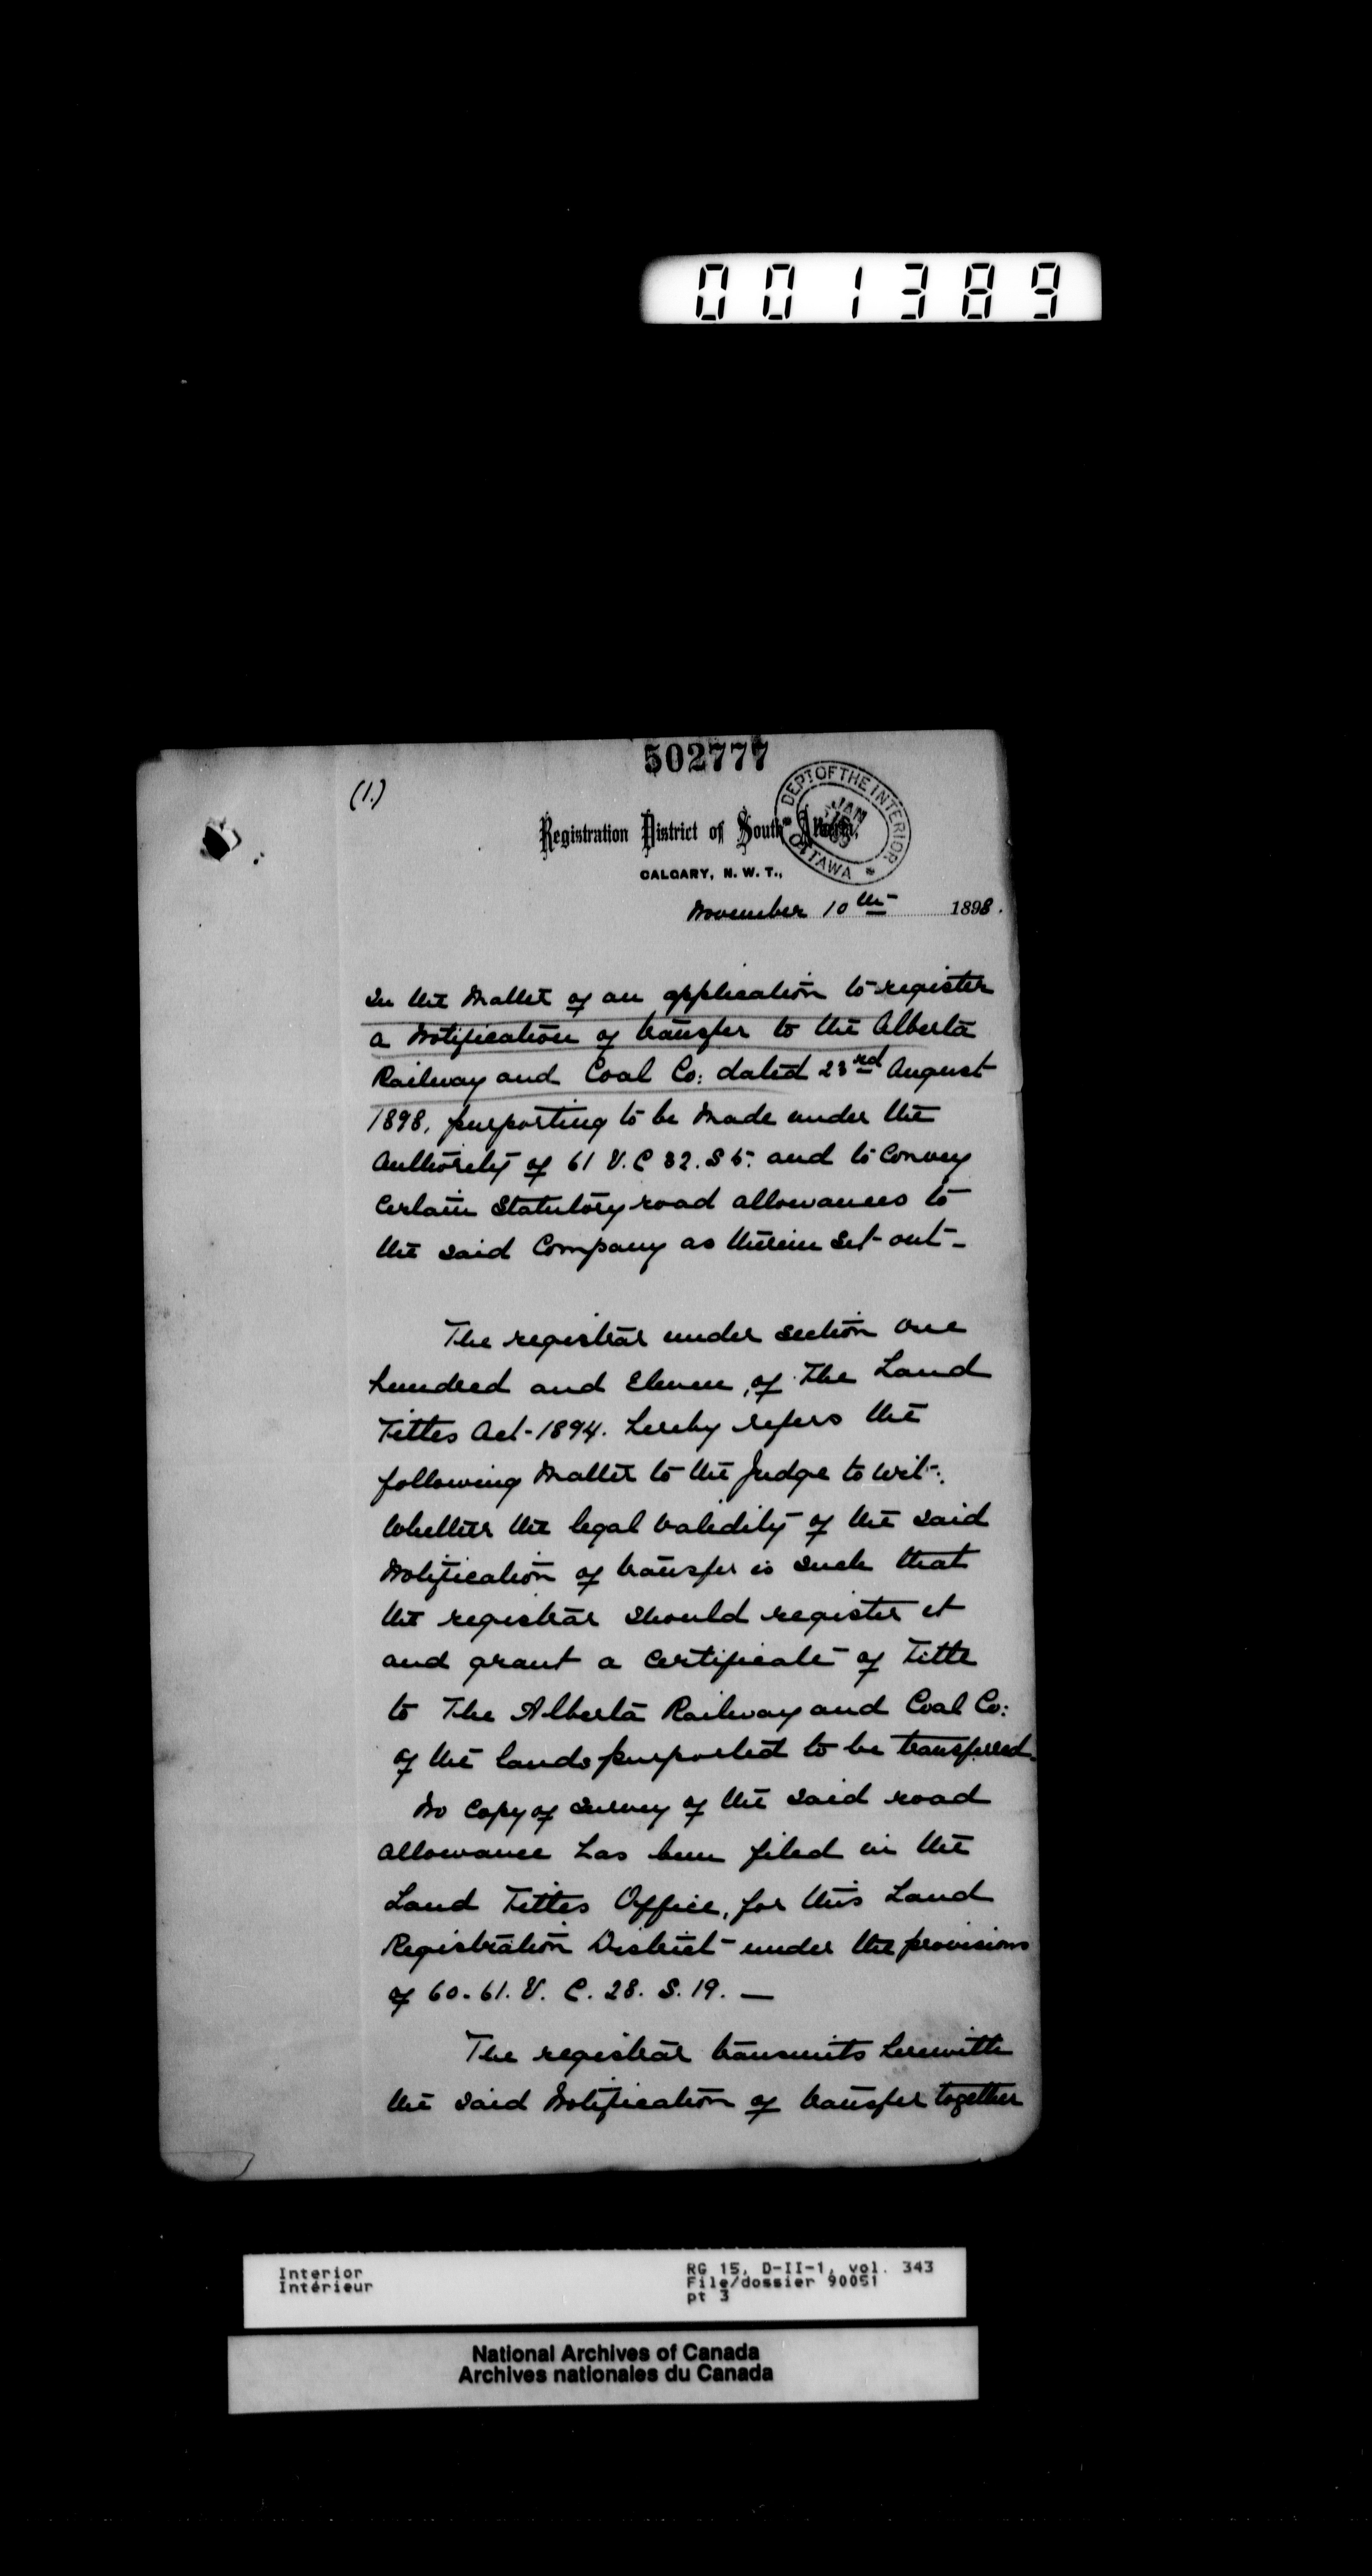 001389
502777
(1.)
DEPT OF THE INTERIOR
JAN
OTTAWA
Registration District of South Alberta,
CALGARY, N. W. T.,
November 10th 1898.
In the Matter of an application to register
a Notification of transfer to the Alberta
Railway and Coal Co: dated 23rd August
1898, purporting to be made under the
Authority of 61 V. C 82. S 5. and to Convey
Certain Statutory road allowances to
the said Company as therein Set out -
The registrar under section One
hundred and Eleven, of The Land
Titles Act - 1894. hereby refers the
following Matter to the Judge to wit:
Whether the legal validity of the said
Notification of transfer is such that
the registrar should register it
and grant a Certificate of Title
to The Alberta Railway and Coal Co:
of the lands purported to be transferred.
No Copy of survey of the said road
allowance has been filed in the
Land Titles Office, for this Land
Registration District - under the provisions
of 60-61. V. C. 28. S. 19. —
The registrar transmits herewith
the said Notification of transfer together
Interior
Intérieur
RG 15, D-II-1, vol. 343
File/dossier 90051
pt 3
National Archives of Canada
Archives nationales du Canada